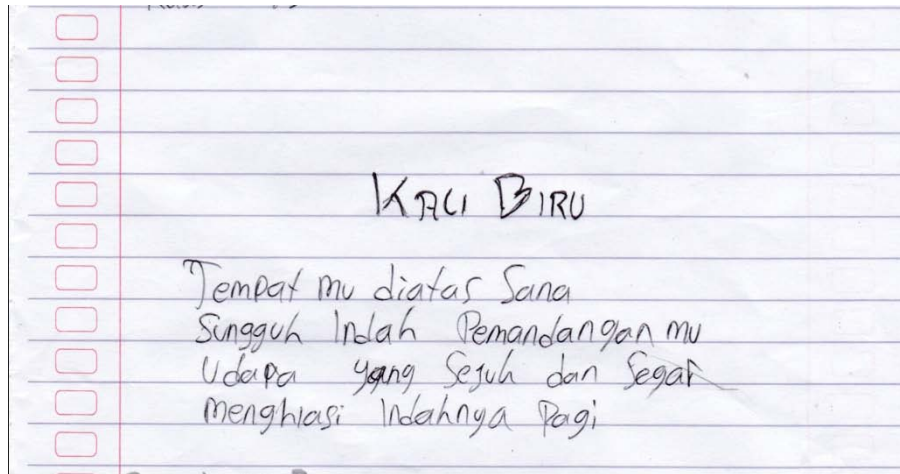 KALI BIRU
Tempat mu diatas Sana
Sungguh Indah Pemandangan mu
Udapa yang Sejuh dan Segar
menghiasi Indahnya Pagi